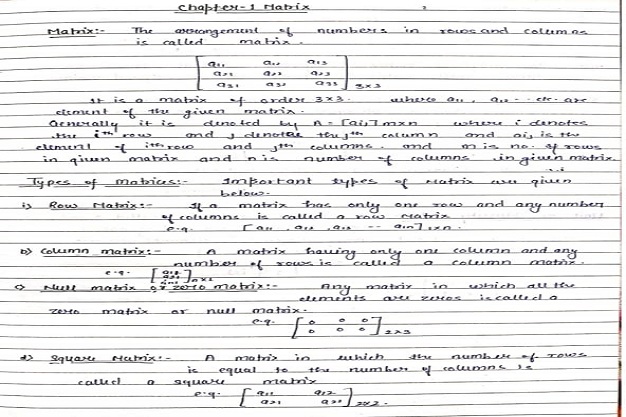 Chapter-1 Matrix
Matrix:- The arrangement of numbers in rows and columns
is called matrix.
[ a11 a12 a13
a21 a22 a23
a31 a32 a33 ] 3×3
It is a matrix of order 3×3. where a11, a12 --- etc. are
element of the given matrix.
Generally it is denoted by A = [aij] m×n where i denotes
the ith row and j denotes the jth column and aij is the
element of ith row and jth columns. and m is no. of rows
in given matrix and n is number of columns in given matrix.
Types of matrices:- Important types of matrix are given
below.
i) Row Matrix:- If a matrix has only one row and any number
of columns is called a row matrix
e.g. [a11 , a12 , a13 -- a1n] 1×n.
b) Column matrix:- A matrix having only one column and any
number of rows is called a column matrix.
e.g.
c) Null matrix or zero matrix:- Any matrix in which all the
elements are zeros is called a
zero matrix or null matrix.
e.g. [ 0 0 0
0 0 0 ] 2×3
d) Square Matrix:- A matrix in which the number of rows
is equal to the number of columns is
called a square matrix
e.g. [ a11 a12
a21 a22 ] 2×2.